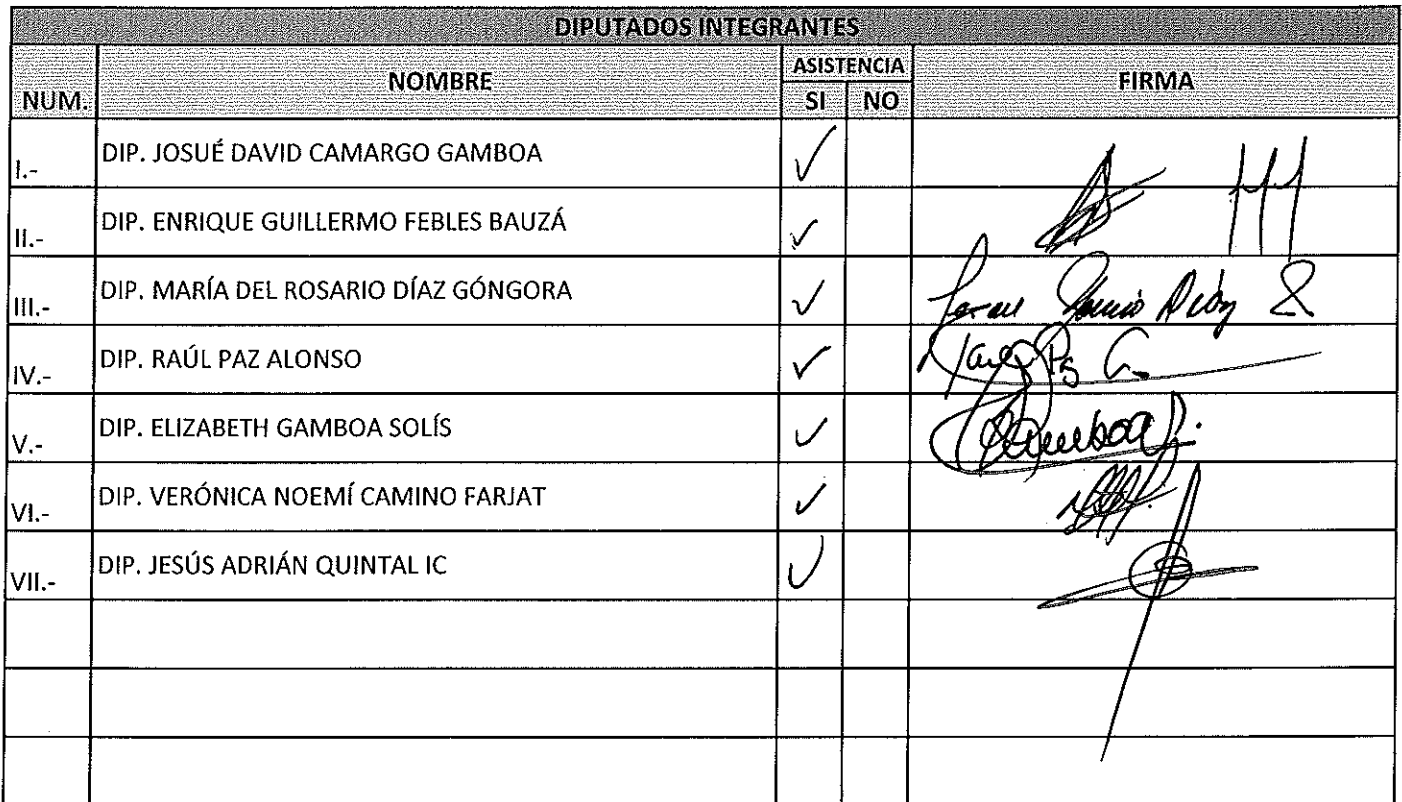 DIPUTADOS INTEGRANTES
NUM. NOMBRE ASISTENCIA FIRMA
SI NO
I.- DIP. JOSUÉ DAVID CAMARGO GAMBOA
II.- DIP. ENRIQUE GUILLERMO FEBLES BAUZÁ
III.- DIP. MARÍA DEL ROSARIO DÍAZ GÓNGORA
IV.- DIP. RAÚL PAZ ALONSO
V.- DIP. ELIZABETH GAMBOA SOLÍS
Gamboa
VI.- DIP. VERÓNICA NOEMÍ CAMINO FARJAT
VII.- DIP. JESÚS ADRIÁN QUINTAL IC